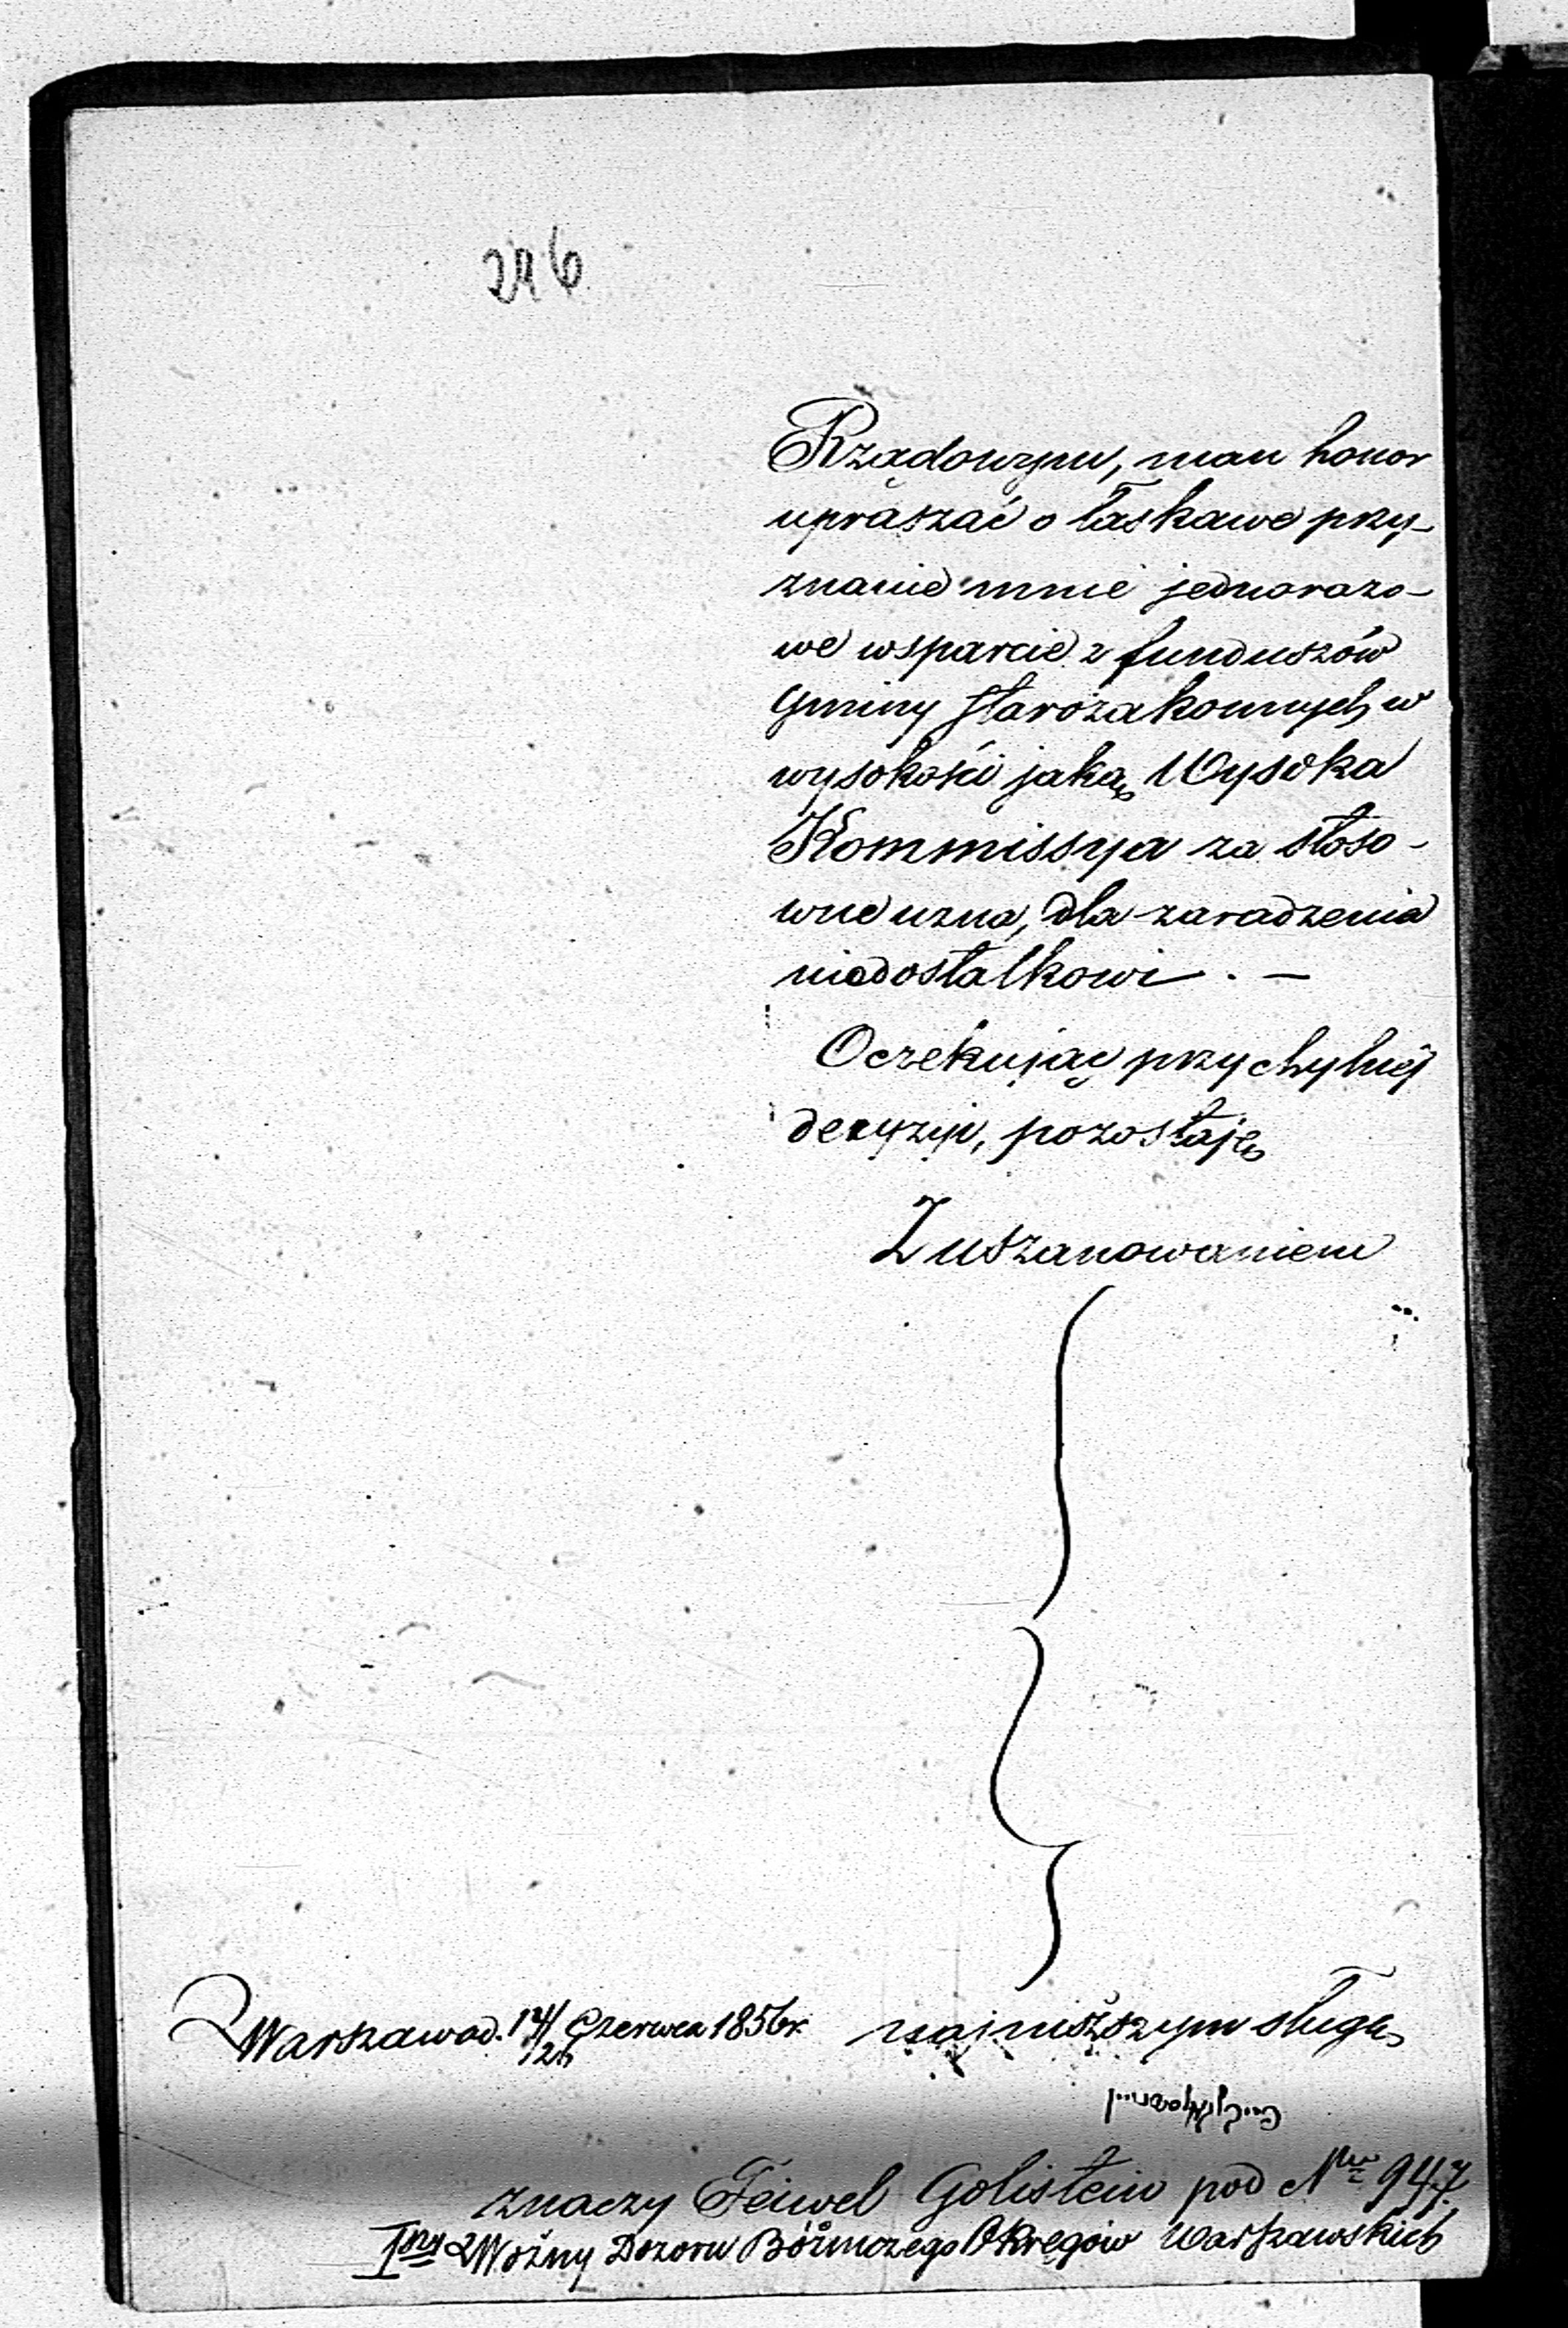 246
Rządowym, mam honor
upraszać o łaskawe przy-
znanie mnie jednorazo-
we wsparcie z funduszów
Gminy Starozakonnych w
wysokości jaką Wysoka
Kommissya za stoso-
wne uzna, dla zaradzenia
niedostatkowi. —
Oczekując przychylnéj
decyzyi, pozostaję
Z uszanowaniem
Warszawa d. 14/26 Czerwca 1856 r.
najniższym sługą
znaczy Feiwel Golistein pod Nrem 947.
Iszy Woźny Dozoru Bóżniczego Okręgów Warszawskich